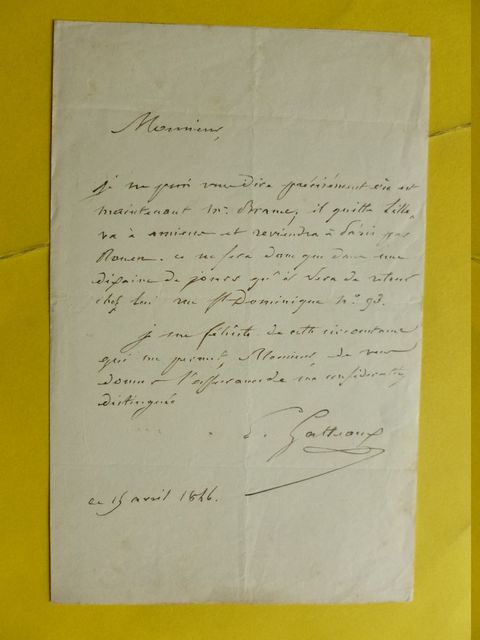 Monsieur,
je ne puis vous dire précisément où est
maintenant Mr. Brame, il quitte Lille,
va à amiens et reviendra à Paris par
Rouen. ce ne sera donc que dans une
dixaine de jours qu'il sera de retour
chez lui rue St Dominique no.
je me félicite de cette circonstance
qui me permet, Monsieur, de vous
donner l'assurance de ma considération
distinguée
E. Gatteaux
ce 15 avril 1846.